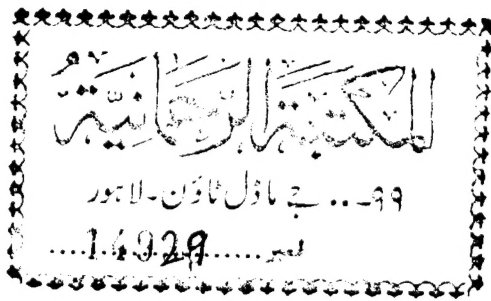 المكتبة الرحمانية
۹۹۔.. جے ماڈل ٹاؤن۔لاہور
نمبر.....14029.....